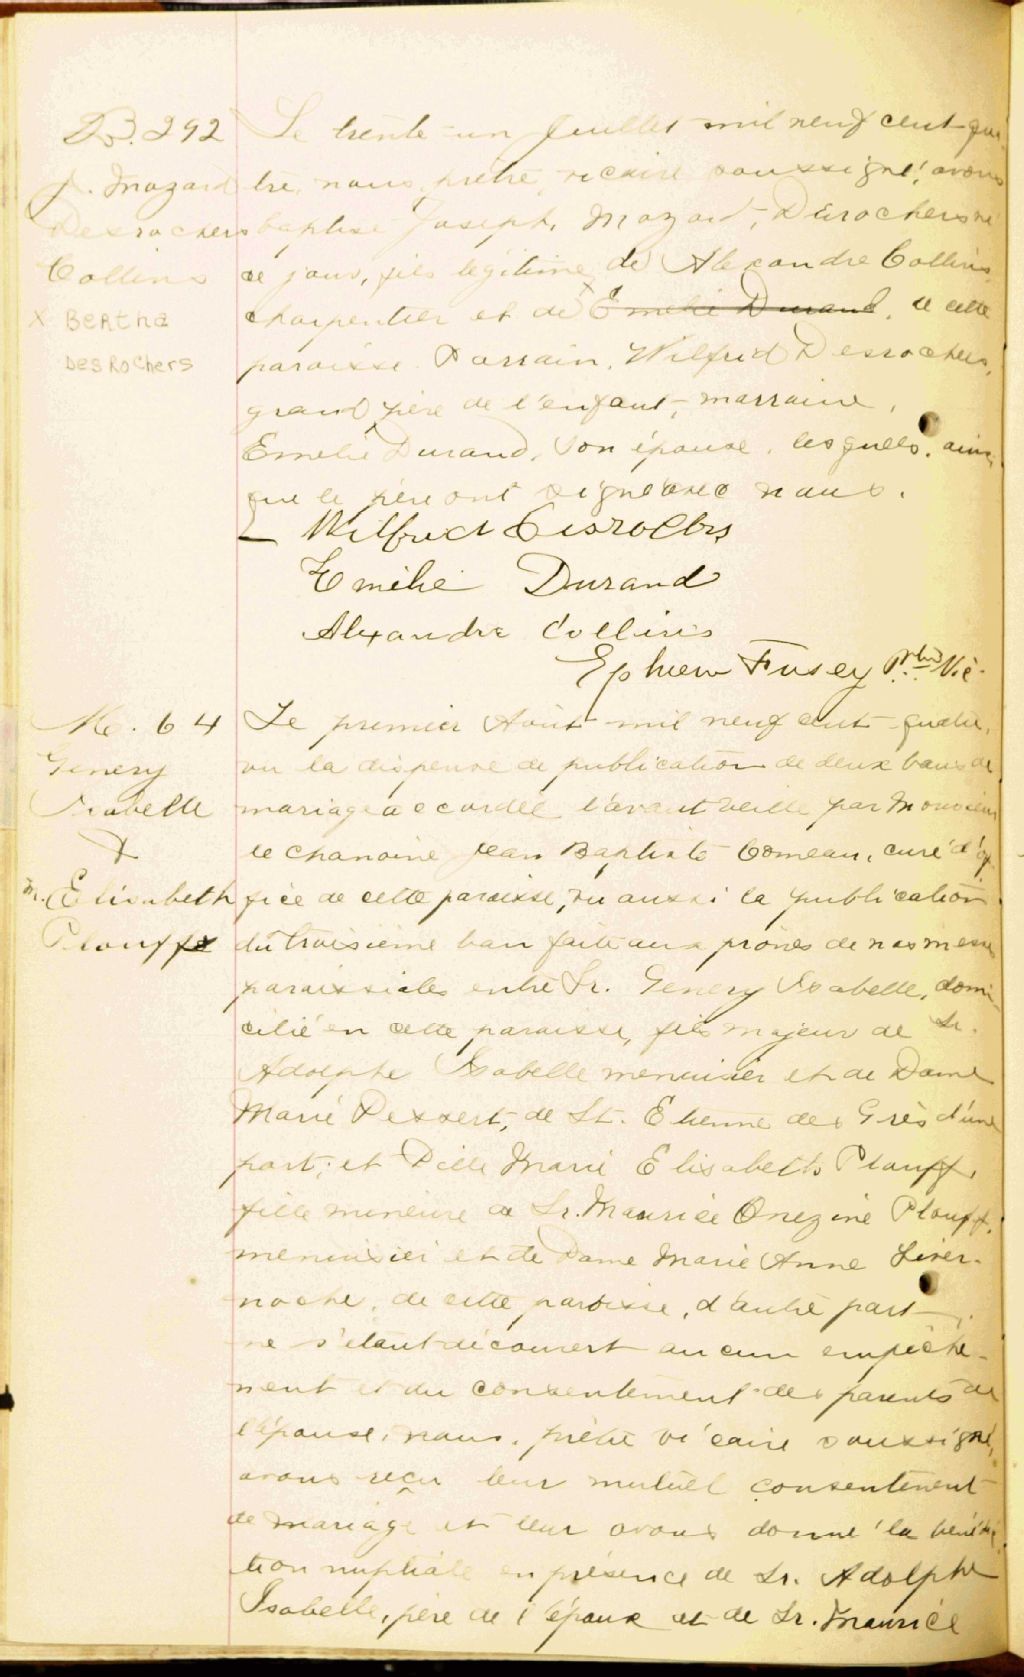 B. 292
J. Mozard
Desrochers
Collins
x Bertha
Desrochers
Le trente-un Juillet mil neuf cent qua-
tre, nous, prêtre, vicaire soussigné, avons
baptisé Joseph, Mozard, Durochers né
ce jour, fils légitime de Alexandre Collins
charpentier et de x Emélie Durand, de cette
paroisse. Parrain, Wilfrid Desrochers,
grand père de l'enfant, marraine,
Emélie Durand, son épouse, lesquels, ainsi
que le père ont signé avec nous.
Wilfrid Desrochers
Emélie Durand
Alexandre Collins
Ephrem Fusey Ptre Vic.
M. 64
Genery
Isabelle
&
M. Elisabeth
Plouffe
Le premier Août mil neuf cent quatre,
vu la dispense de publication de deux bans de
mariage accordée l'avant veille par Monsieur
le chanoine Jean Baptiste Comeau, curé d'of
fice de cette paroisse, vu aussi la publication
du troisième ban faite aux prônes de nos messes
paroissiales entre Sr. Genery Isabelle, domi-
cilié en cette paroisse, fils majeur de Sr.
Adolphe Isabelle menuisier et de Dame
Marie Pessert, de St. Etienne des Grès d'une
part; et Delle Marie Elisabeth Plouff,
fille mineure de Sr. Maurice Onezine Plouff,
menuisier et de Dame Marie Anne Liver-
noche, de cette paroisse, d'autre part,
ne s'étant découvert aucun empêche-
ment et du consentement des parents de
l'épouse, nous, prêtre vicaire soussigné,
avons reçu leur mutuel consentement
de mariage et leur avons donné la bénédic
tion nuptiale en présence de Sr. Adolphe
Isabelle, père de l'époux et de Sr. Maurice